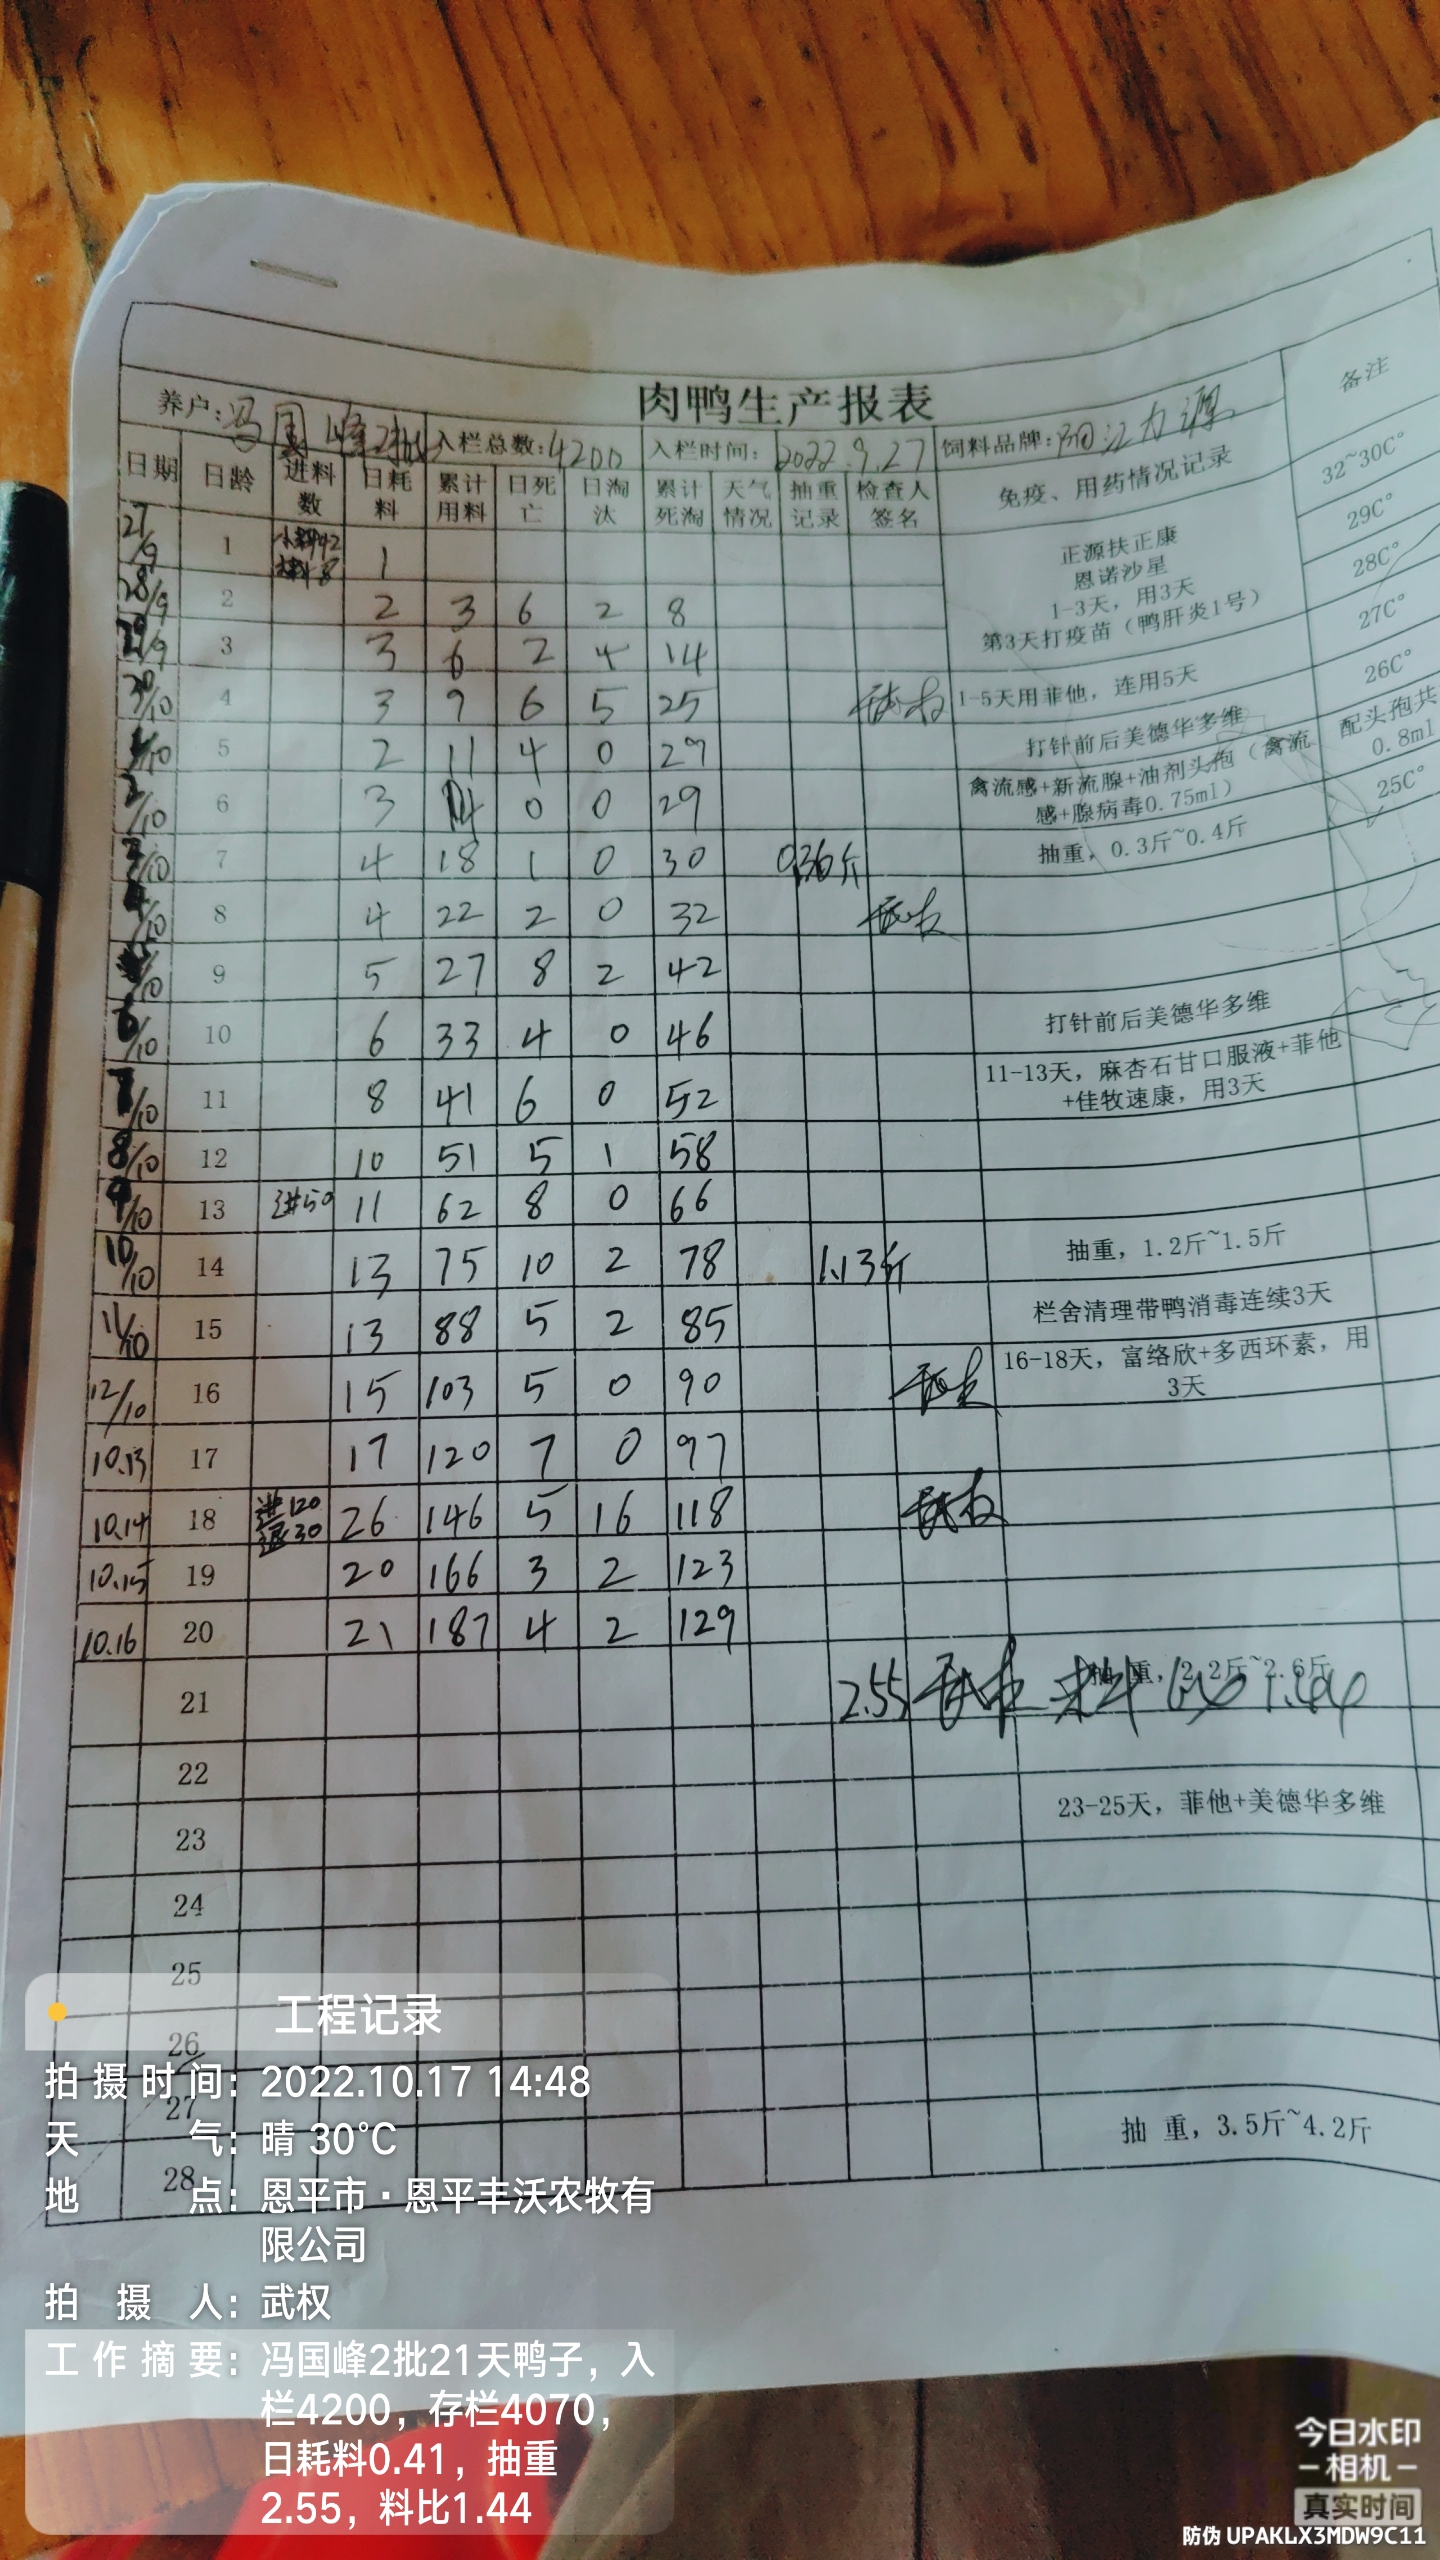 肉鸭生产报表
养户:冯国峰2批 入栏总数:4200 入栏时间: 2022.9.27 饲料品牌:阳江力源 备注
日期 日龄 进料数 日耗料 累计用料 日死亡 日淘汰 累计死淘 天气情况 抽重记录 检查人签名 免疫、用药情况记录 32~30C°
27/9 1 小料42 1 正源扶正康 29C°
恩诺沙星
28/9 2 2 3 6 2 8 1-3天，用3天 28C°
29/9 3 3 6 2 4 14 第3天打疫苗（鸭肝炎1号） 27C°
30/10 4 3 9 6 5 25 武权 1-5天用菲他，连用5天 26C°
1/10 5 2 11 4 0 29 打针前后美德华多维 配头孢共0.8ml
2/10 6 3 14 0 0 29 禽流感+新流腺+油剂头孢（禽流感+腺病毒0.75ml） 25C°
3/10 7 4 18 1 0 30 0.36斤 抽重，0.3斤~0.4斤
4/10 8 4 22 2 0 32 武权
5/10 9 5 27 8 2 42
6/10 10 6 33 4 0 46 打针前后美德华多维
7/10 11 8 41 6 0 52 11-13天，麻杏石甘口服液+菲他+佳牧速康，用3天
8/10 12 10 51 5 1 58
9/10 13 进50 11 62 8 0 66
10/10 14 13 75 10 2 78 1.13斤 抽重，1.2斤~1.5斤
11/10 15 13 88 5 2 85 栏舍清理带鸭消毒连续3天
12/10 16 15 103 5 0 90 武权 16-18天，富络欣+多西环素，用3天
10.13 17 17 120 7 0 97
10.14 18 进120 退30 26 146 5 16 118 武权
10.15 19 20 166 3 2 123
10.16 20 21 187 4 2 129
21 2.55 武权 抽 重，2.2斤~2.6斤
22
23 23-25天，菲他+美德华多维
24
25
26
27
28 抽 重，3.5斤~4.2斤
工程记录
拍摄时间：2022.10.17 14:48
天气：晴 30°C
地点：恩平市·恩平丰沃农牧有
限公司
拍摄人：武权
工作摘要：冯国峰2批21天鸭子，入
栏4200，存栏4070，
日耗料0.41，抽重
2.55，料比1.44
今日水印
-相机-
真实时间
防伪 UPAKLX3MDW9C11